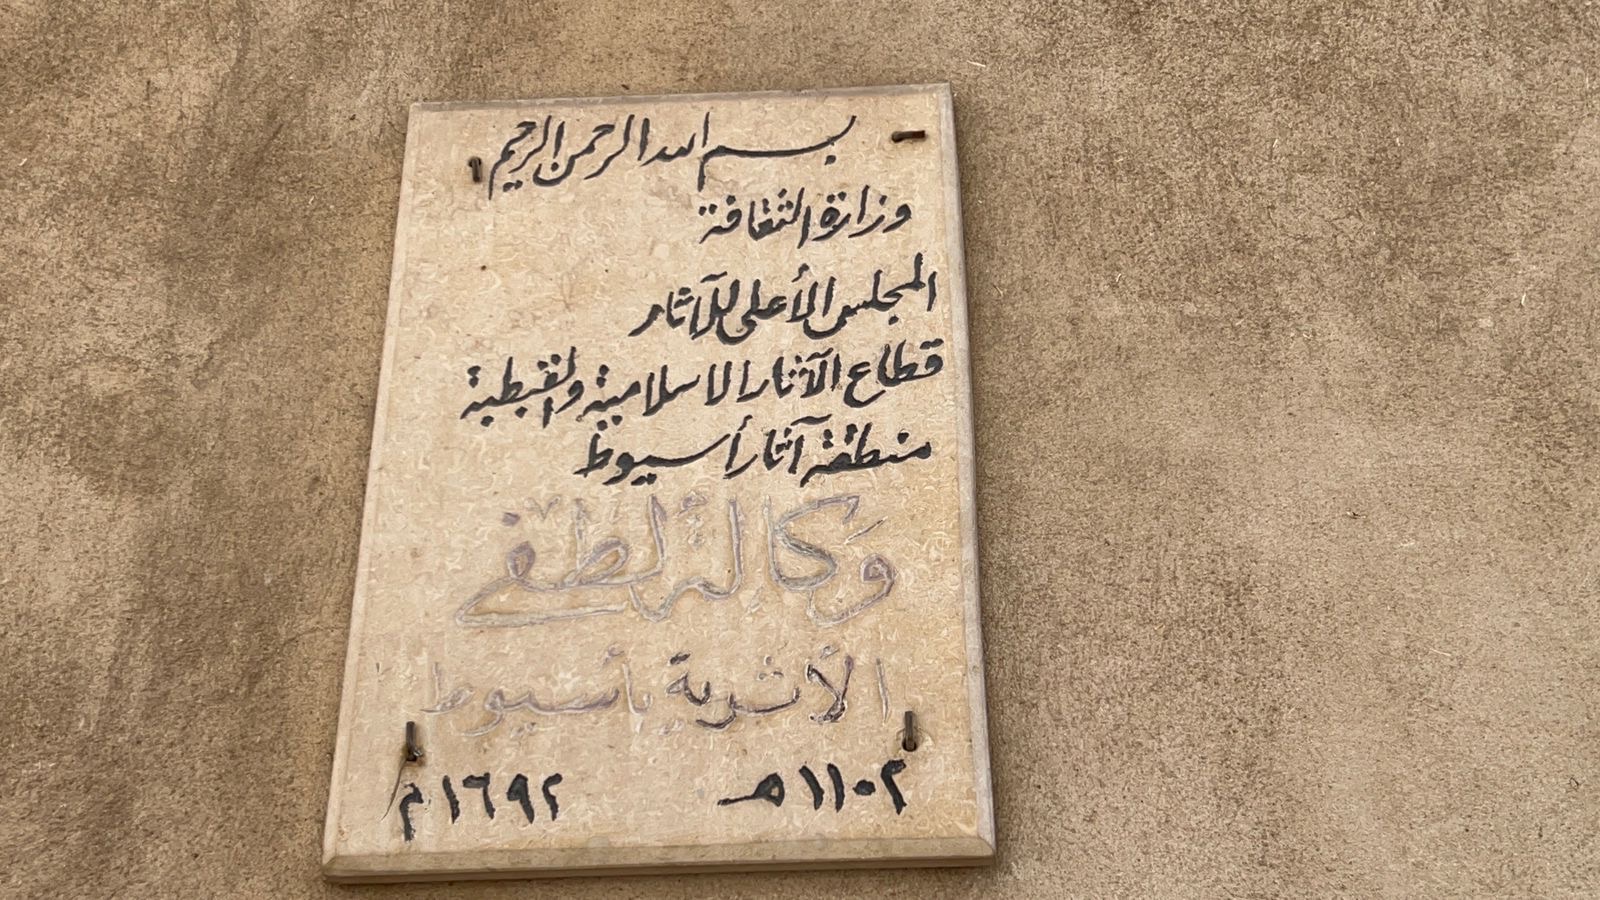 بسم الله الرحمن الرحيم
وزارة الثقافة
المجلس الأعلى للآثار
قطاع الآثار الاسلامية والقبطية
منطقة آثار أسيوط
وكالة لطفى
الأثرية بأسيوط
١١٠٢ هـ ١٦٩٢ م